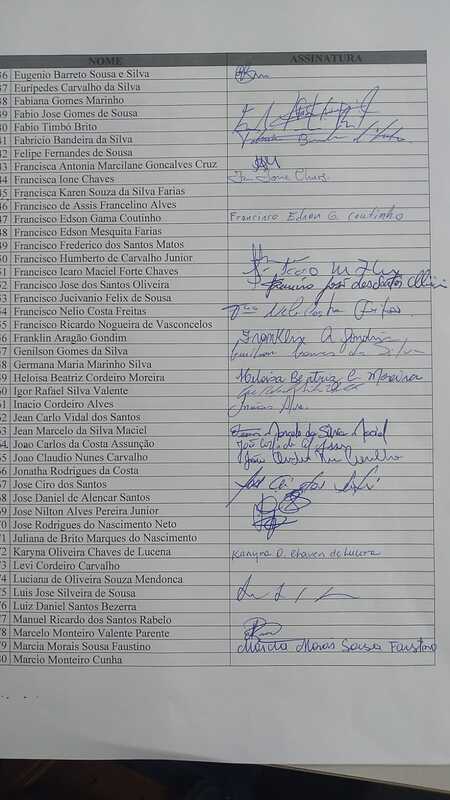 NOME ASSINATURA
36 Eugenio Barreto Sousa e Silva
37 Eurípedes Carvalho da Silva
38 Fabiana Gomes Marinho
39 Fabio Jose Gomes de Sousa
40 Fabio Timbó Brito
41 Fabricio Bandeira da Silva
42 Felipe Fernandes de Sousa
43 Francisca Antonia Marcilane Goncalves Cruz
44 Francisca Ione Chaves
45 Francisca Karen Souza da Silva Farias
46 Francisco de Assis Francelino Alves
47 Francisco Edson Gama Coutinho Francisco Edson G. Coutinho
48 Francisco Edson Mesquita Farias
49 Francisco Frederico dos Santos Matos
50 Francisco Humberto de Carvalho Junior
51 Francisco Icaro Maciel Forte Chaves
52 Francisco Jose dos Santos Oliveira
53 Francisco Jucivanio Felix de Sousa
54 Francisco Nelio Costa Freitas
55 Francisco Ricardo Nogueira de Vasconcelos
56 Franklin Aragão Gondim Franklin A Gondim
57 Genilson Gomes da Silva Genilson Gomes da Silva
58 Germana Maria Marinho Silva
59 Heloisa Beatriz Cordeiro Moreira Heloisa Beatriz C. Moreira
60 Igor Rafael Silva Valente
61 Inacio Cordeiro Alves
62 Jean Carlo Vidal dos Santos
63 Jean Marcelo da Silva Maciel
64 Joao Carlos da Costa Assunção
65 Joao Claudio Nunes Carvalho
66 Jonatha Rodrigues da Costa
67 Jose Ciro dos Santos
68 Jose Daniel de Alencar Santos
69 Jose Nilton Alves Pereira Junior
70 Jose Rodrigues do Nascimento Neto
71 Juliana de Brito Marques do Nascimento
72 Karyna Oliveira Chaves de Lucena Karyna O. Chaves de Lucena
73 Levi Cordeiro Carvalho
74 Luciana de Oliveira Souza Mendonca
75 Luis Jose Silveira de Sousa
76 Luiz Daniel Santos Bezerra
77 Manuel Ricardo dos Santos Rabelo
78 Marcelo Monteiro Valente Parente
79 Marcia Morais Sousa Faustino Márcia Morais Sousa Faustino
80 Marcio Monteiro Cunha